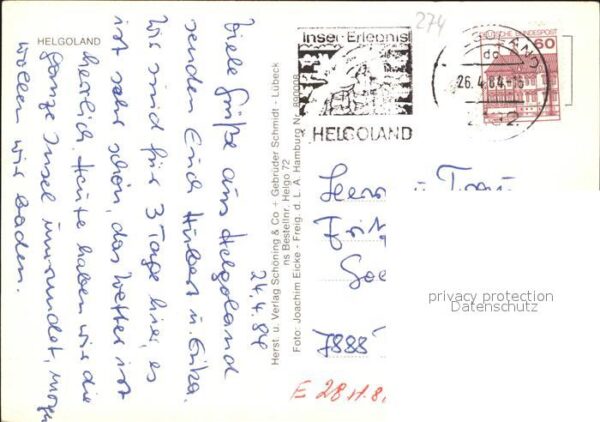 HELGOLAND
24.4.84
Viele Grüße aus Helgoland
senden Euch Hubert u. Erika.
Wir sind für 3 Tage hier, es
ist sehr schön, das Wetter ist
herrlich. Heute haben wir die
ganze Insel umrundet, morgen
wollen wir baden.
Herst. u. Verlag Schöning & Co + Gebrüder Schmidt - Lübeck
ns Bestellnr. Helgo 72
Foto: Joachim Eicke - Freig. d. L. A. Hamburg Nr.
274
Insel-Erlebnis
HELGOLAND
26.4.84
DEUTSCHE BUNDESPOST
60
u
7888
privacy protection
Datenschutz
E 28